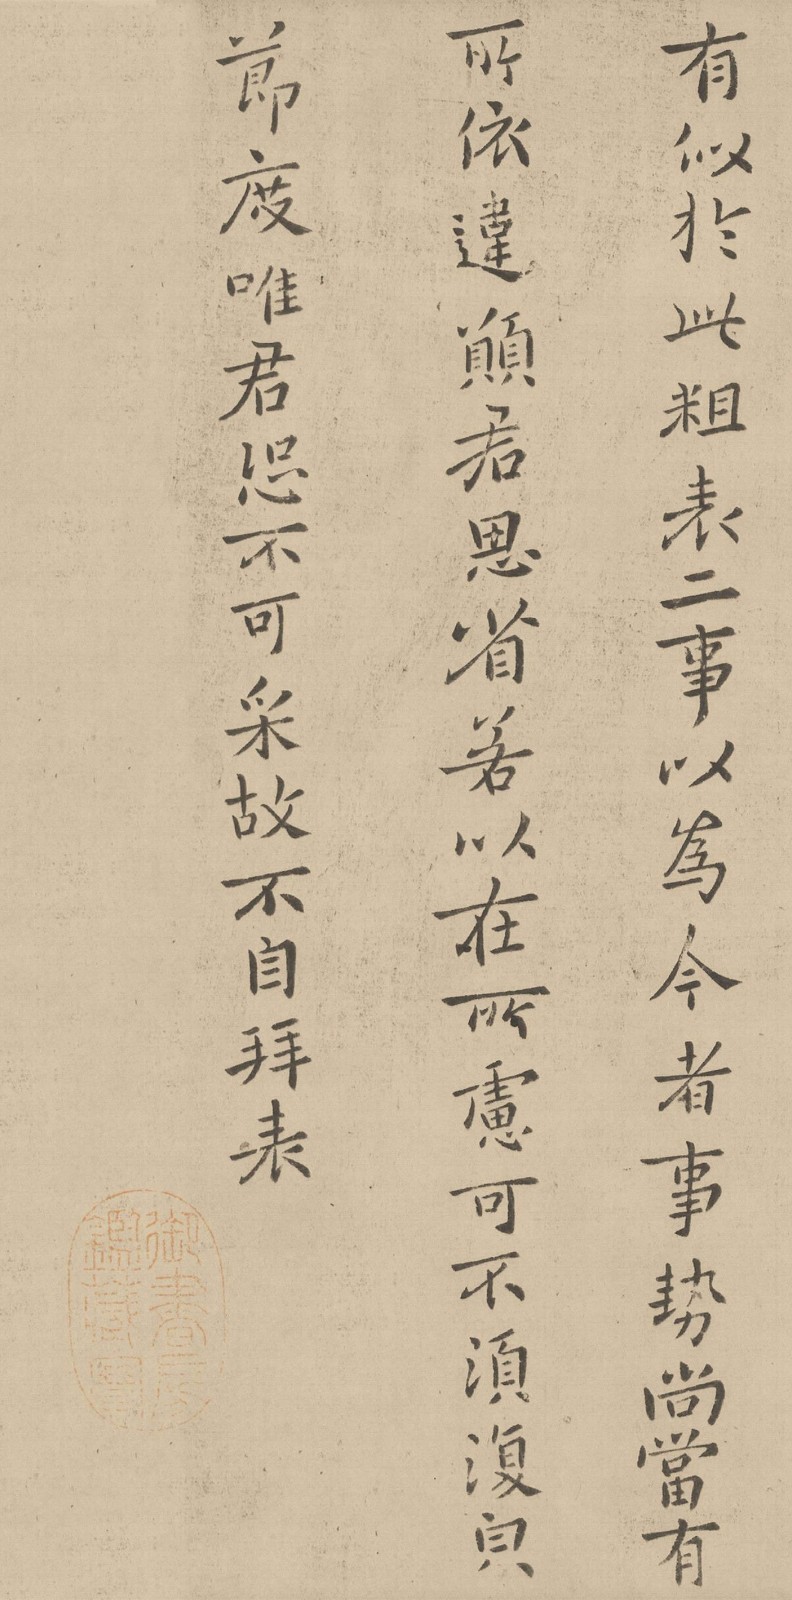 有似於此粗表二事以為今者事勢尚當有
所依違願君思省若以在所慮可不湏復皃
節度唯君恐不可采故不自拜表
御書房
鑑藏寶